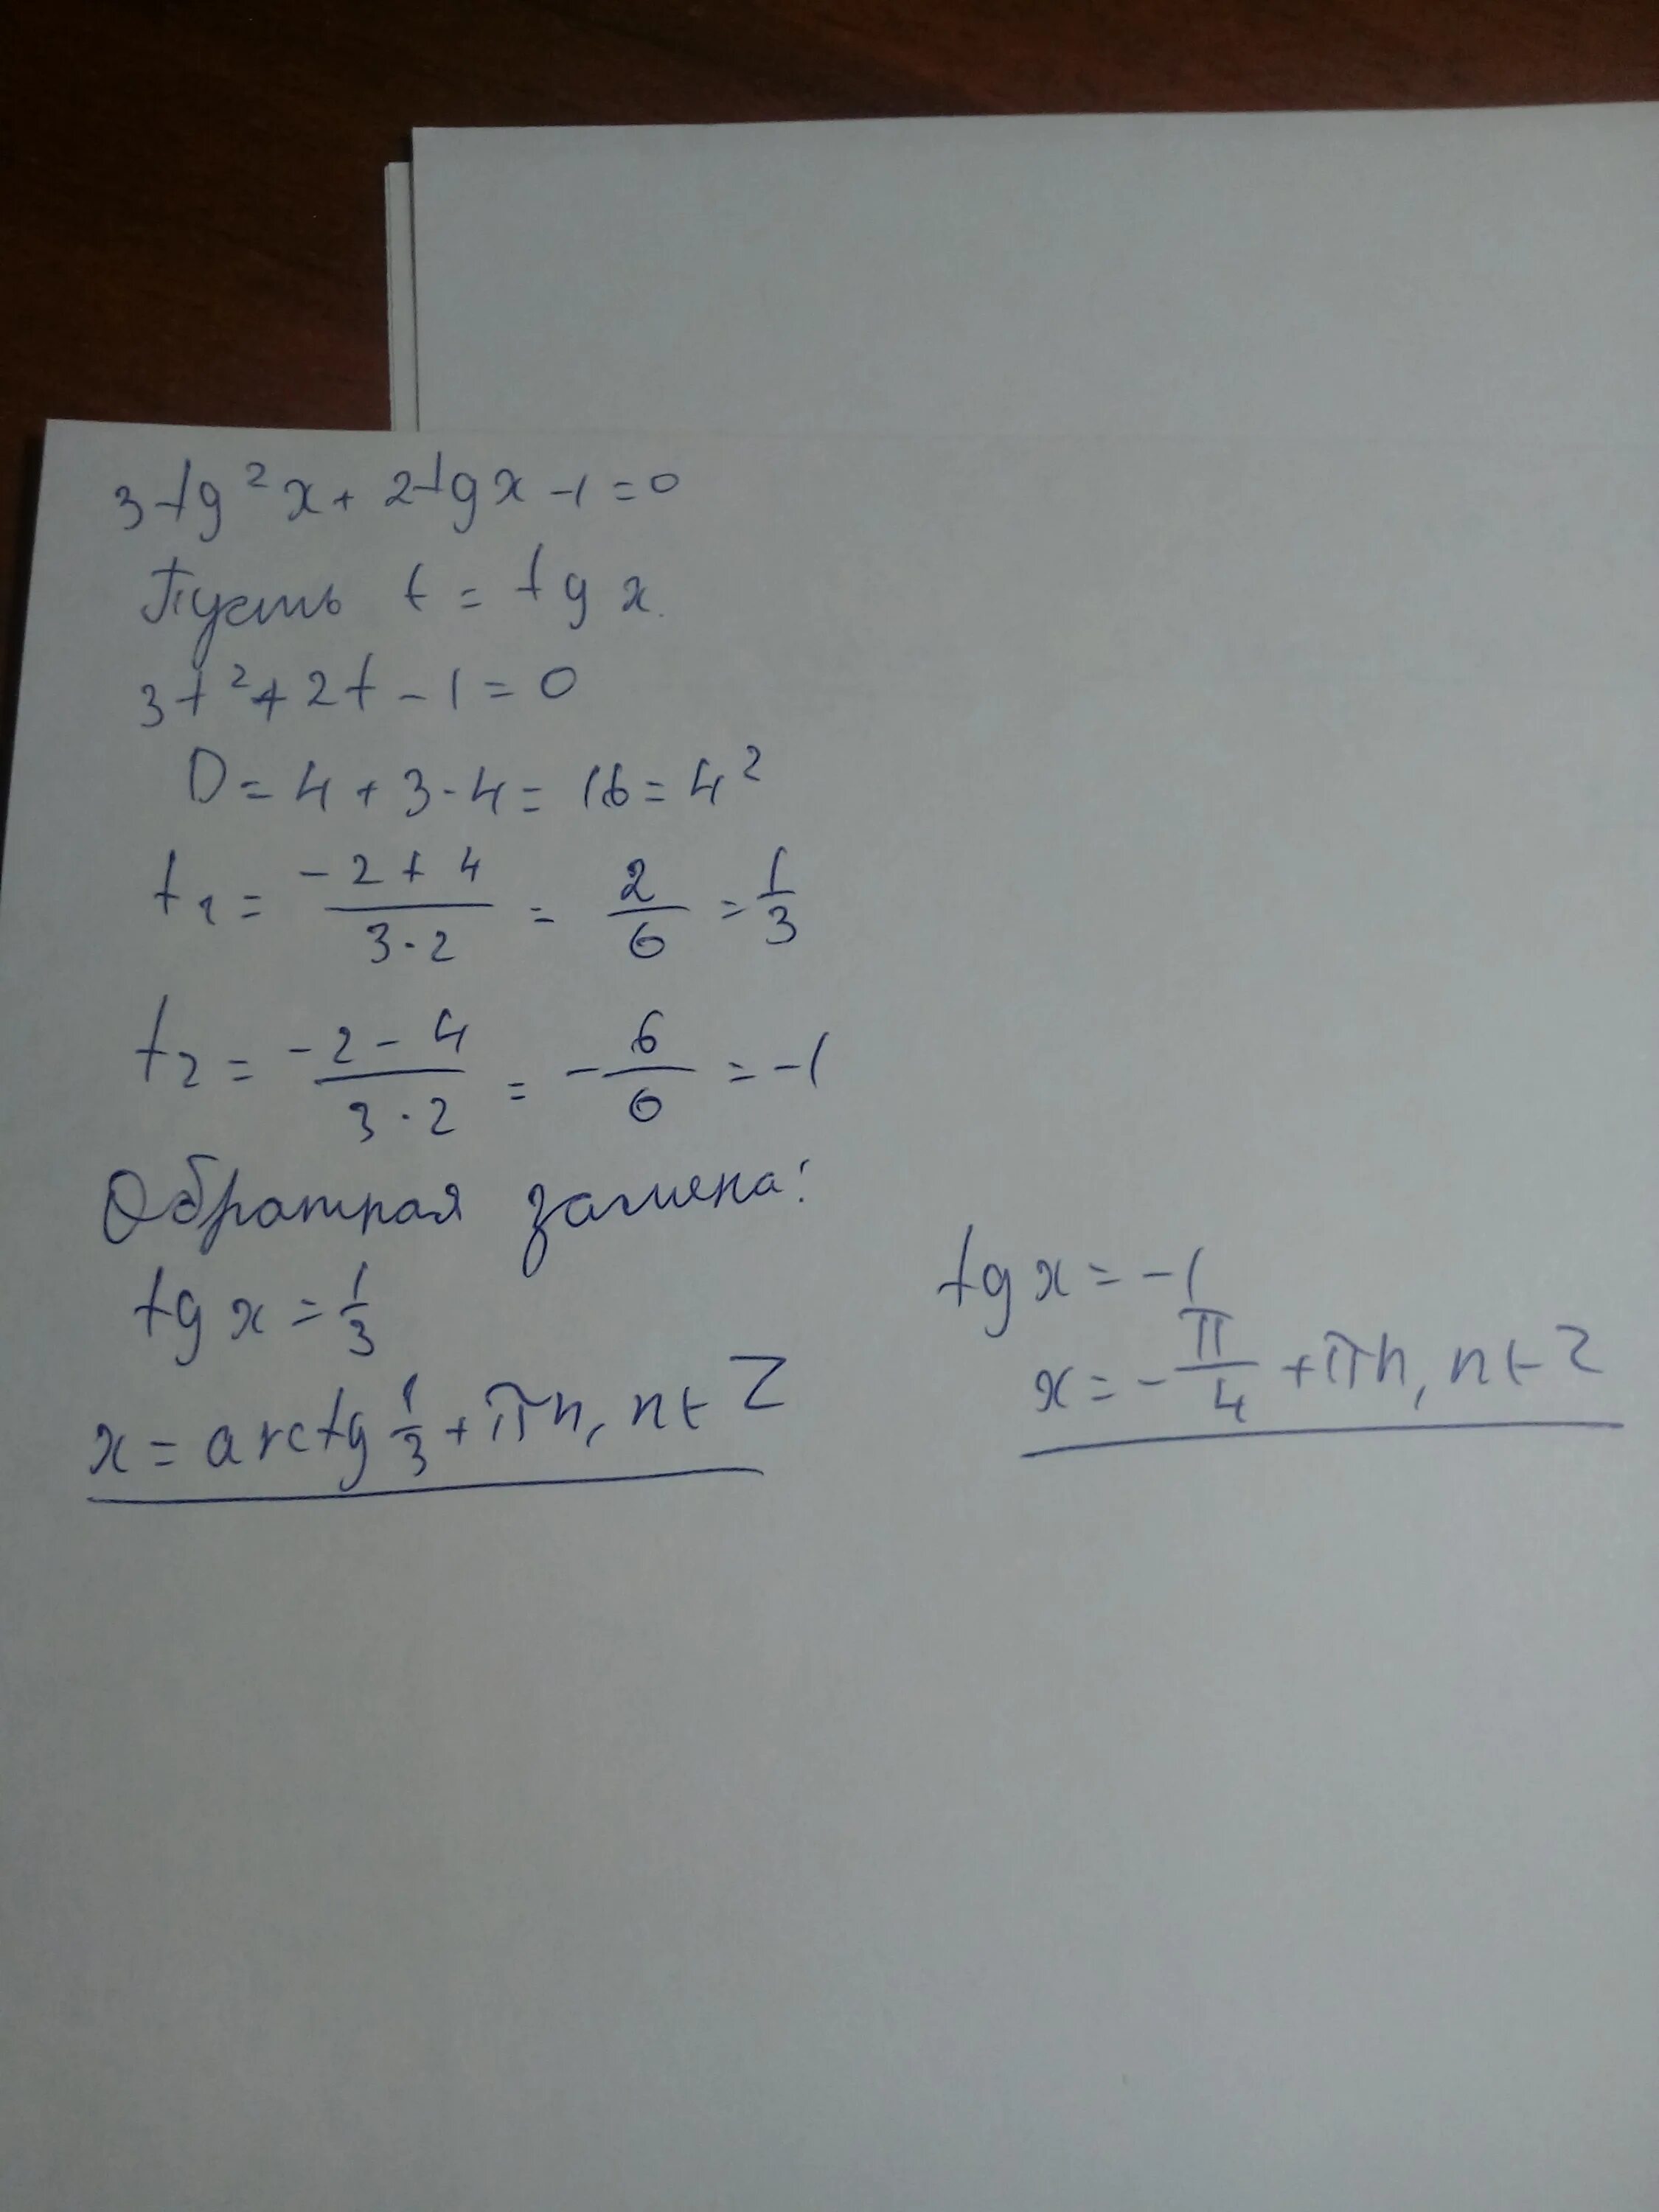 3tg²x + 2tgx - 1 = 0
Пусть t = tg x.
3t² + 2t - 1 = 0
D = 4 + 3·4 = 16 = 4²
t₁ = (-2 + 4)/(3·2) = 2/6 = 1/3
t₂ = (-2 - 4)/(3·2) = -6/6 = -1
Обратная замена:
tg x = 1/3
x = arctg 1/3 + πn, n ∈ Z
tg x = -1
x = -π/4 + πn, n ∈ Z